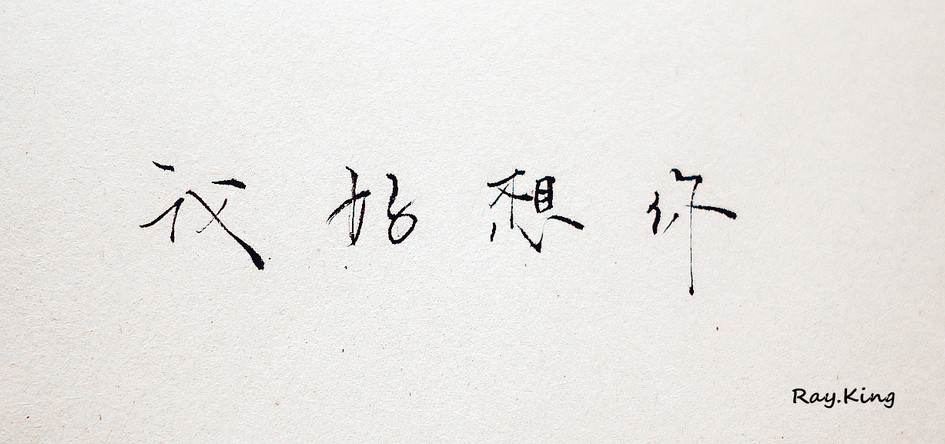 我好想你
Ray.King